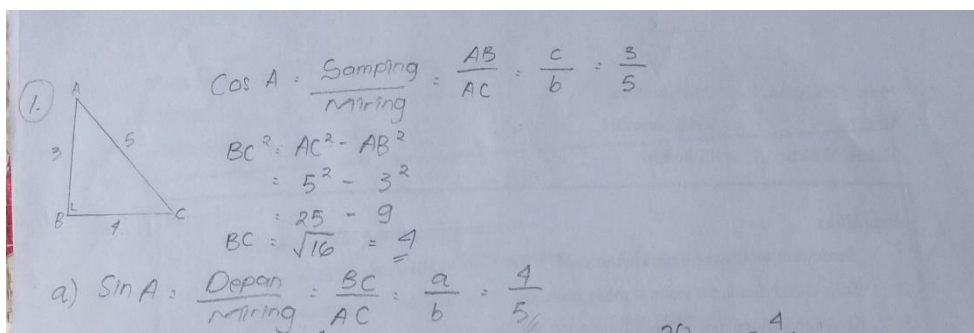 1.
Cos A = Samping/Miring = AB/AC = c/b = 3/5
A
3
5
B
C
4
BC² = AC² - AB²
= 5² - 3²
= 25 - 9
BC = √16 = 4
a) Sin A = Depan/Miring = BC/AC = a/b = 4/5
4